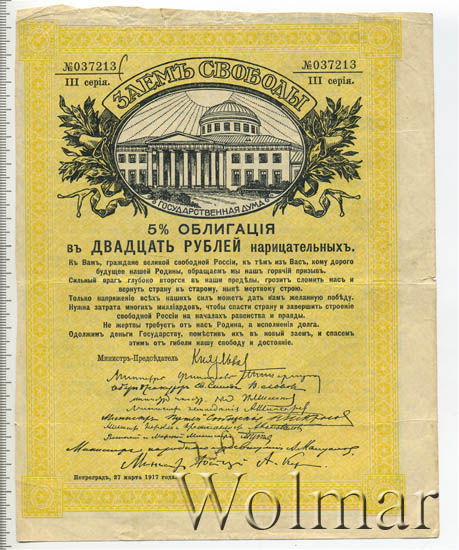 №037213 №037213
III серія. III серія.
ЗАЕМЪ СВОБОДЫ
ГОСУДАРСТВЕННАЯ ДУМА
5% ОБЛИГАЦІЯ
въ ДВАДЦАТЬ РУБЛЕЙ нарицательныхъ.
Къ Вамъ, граждане великой свободной Россіи, къ тѣмъ изъ Васъ, кому дорого
будущее нашей Родины, обращаемъ мы нашъ горячій призывъ.
Сильный врагъ глубоко вторгся въ наши предѣлы, грозитъ сломить насъ и
вернуть страну къ старому, нынѣ мертвому строю.
Только напряженіе всѣхъ нашихъ силъ можетъ дать намъ желанную побѣду.
Нужна затрата многихъ милліардовъ, чтобы спасти страну и завершить строеніе
свободной Россіи на началахъ равенства и правды.
Не жертвы требуетъ отъ насъ Родина, а исполненія долга.
Одолжимъ деньги Государству, помѣстивъ ихъ въ новый заемъ, и спасемъ
этимъ отъ гибели нашу свободу и достояніе.
Министръ-Предсѣдатель Кн. Львовъ
Министръ Финансовъ
Петроградъ, 27 марта 1917 года.
Wolmar